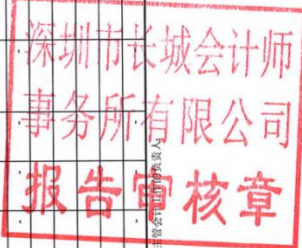 深圳市长城会计师
事务所有限公司
报告审核章
主管会计工作的负责人